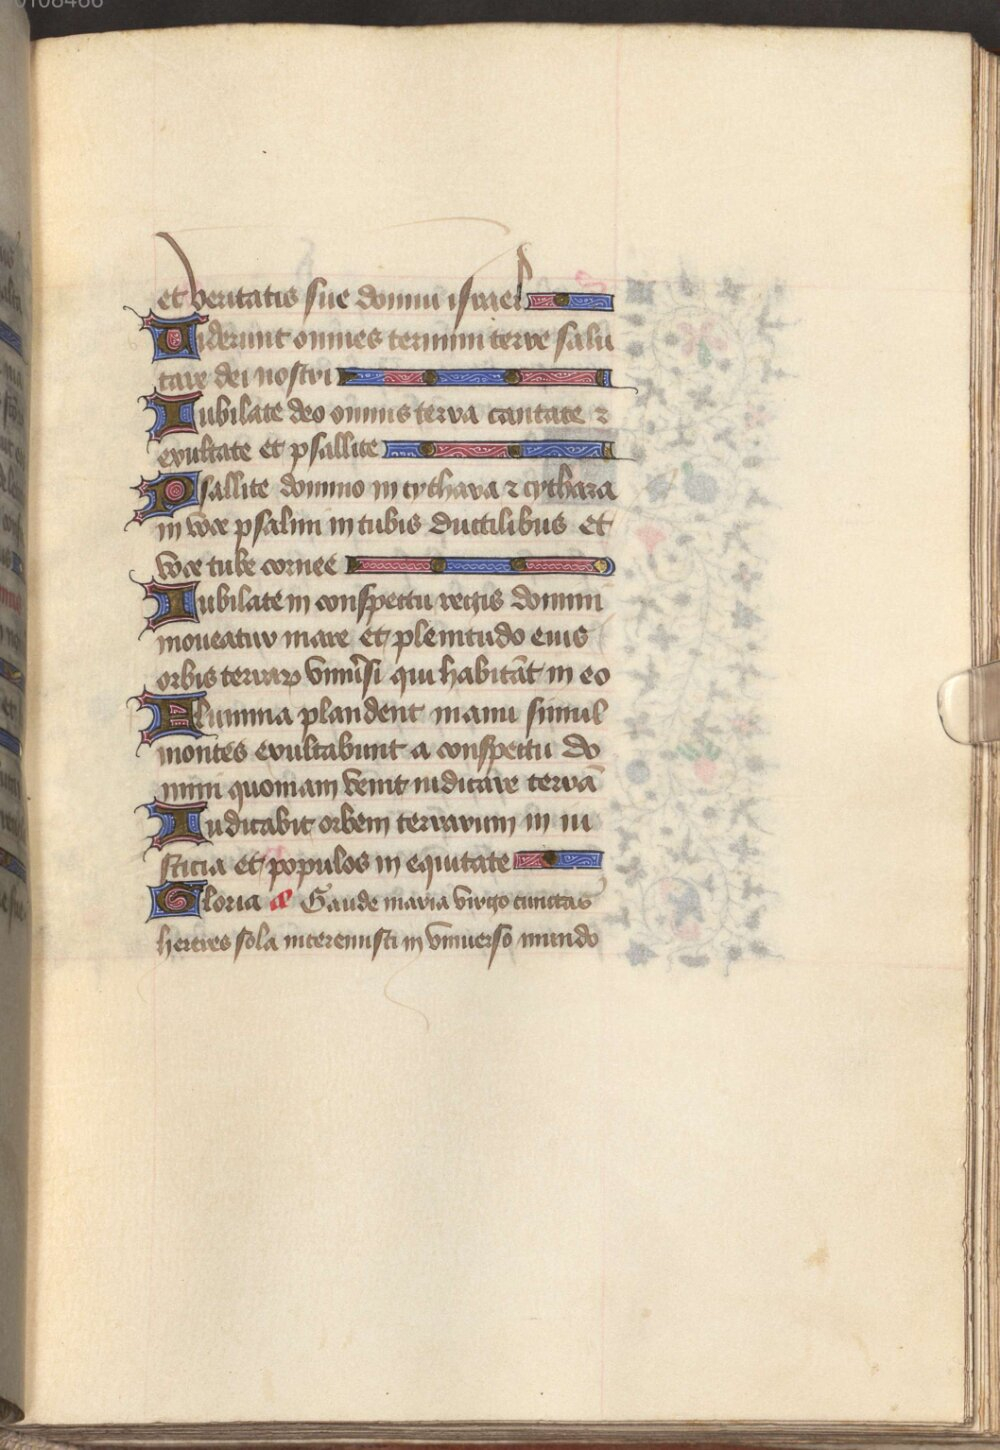 0108466
et veritatis sue domui israel
Viderunt omnes termini terre salu
tare dei nostri
Iubilate deo omnis terra cantate ⁊
exultate et psallite
Psallite domino in cythara ⁊ cythara
in voce psalmi in tubis ductilibus et
voce tube cornee
Iubilate in conspectu regis domini
moueatur mare et plenitudo eius
orbis terraꝝ vniũsi qui habitāt in eo
Flumina plaudent manu simul
montes exultabunt a conspectu do
mini quoniam venit iudicare terrā
Iudicabit orbem terrarum in iu
sticia et populos in equitate
Gloria a Gaude maria virgo cunctas
hereses sola interemisti in vniuerso mundo